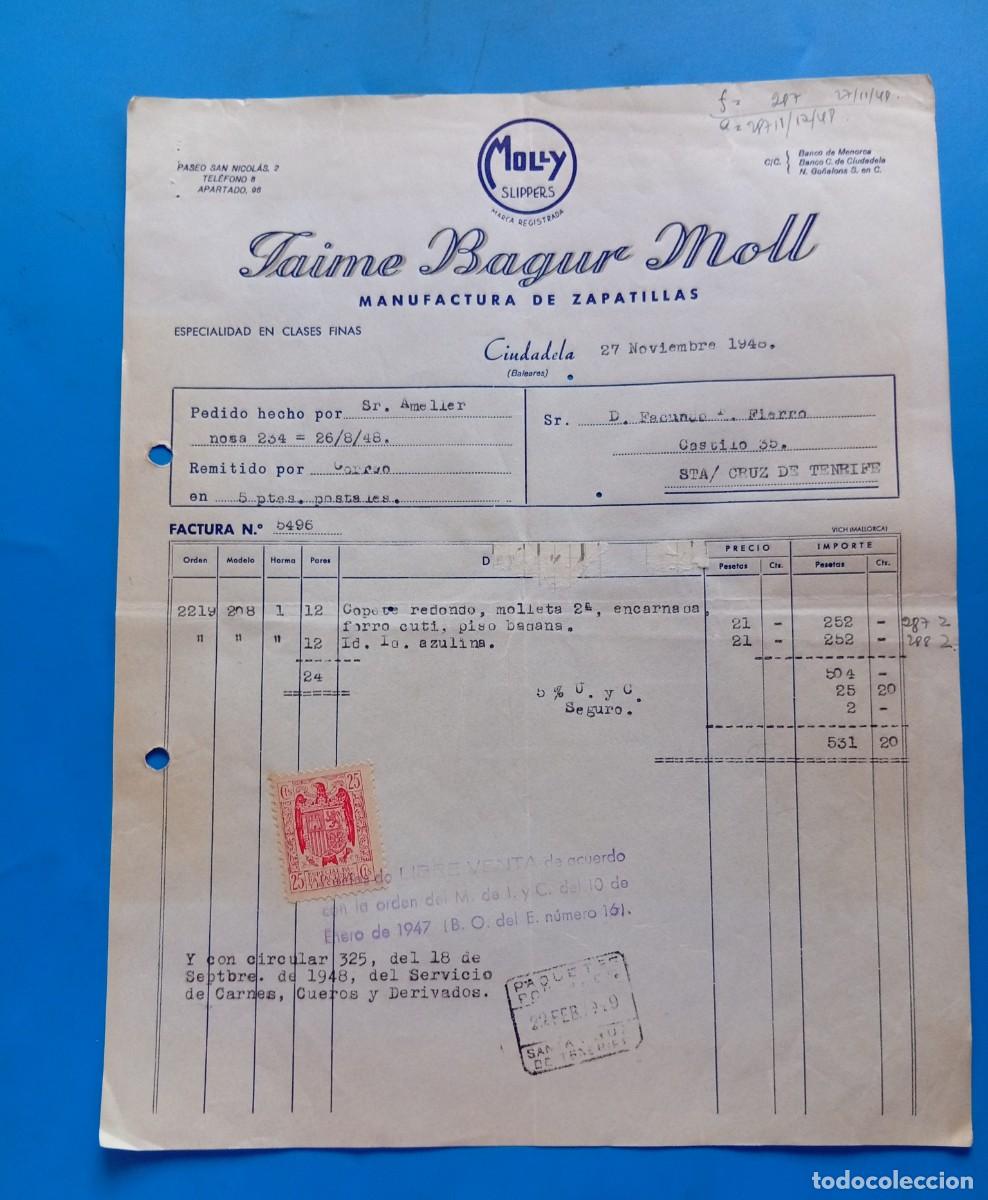 27/11/48.
MOLLY
SLIPPERS
MARCA REGISTRADA
PASEO SAN NICOLÁS, 2
TELÉFONO 8
APARTADO, 96
C/C. Banco de Menorca
Banco C. de Ciudadela
N. Goñalons S. en C.
Jaime Bagur Moll
MANUFACTURA DE ZAPATILLAS
ESPECIALIDAD EN CLASES FINAS
Ciudadela 27 Noviembre 1948.
(Baleares)
Pedido hecho por Sr. Ameller
nosa 234 = 26/8/48.
Remitido por Correo
en 5 ptes. postales.
Sr. D. Facundo Fierro
Castilo 35.
STA/ CRUZ DE TENRIFE
FACTURA N.º 5496
VICH (MALLORCA)
Orden Modelo Horma Pares D PRECIO IMPORTE
Pesetas Cts. Pesetas Cts.
2219 208 1 12 Copete redondo, molleta 2ª, encarnada,
forro cuti, piso badana. 21 - 252 - 287 2
" " " 12 Id. Id. azulina. 21 - 252 - 288 2
24 504 -
5 % U. y C. 25 20
Seguro. 2 -
531 20
25 Cts
25 Cts
LIBRE VENTA de acuerdo
con la orden del M. de I. y C. del 10 de
Enero de 1947 (B. O. del E. número 16).
Y con circular 325, del 18 de
Septbre. de 1948, del Servicio
de Carnes, Cueros y Derivados.
PAQUETES
22 FEB 1949
SANTA CRUZ
DE TENERIFE
todocoleccion